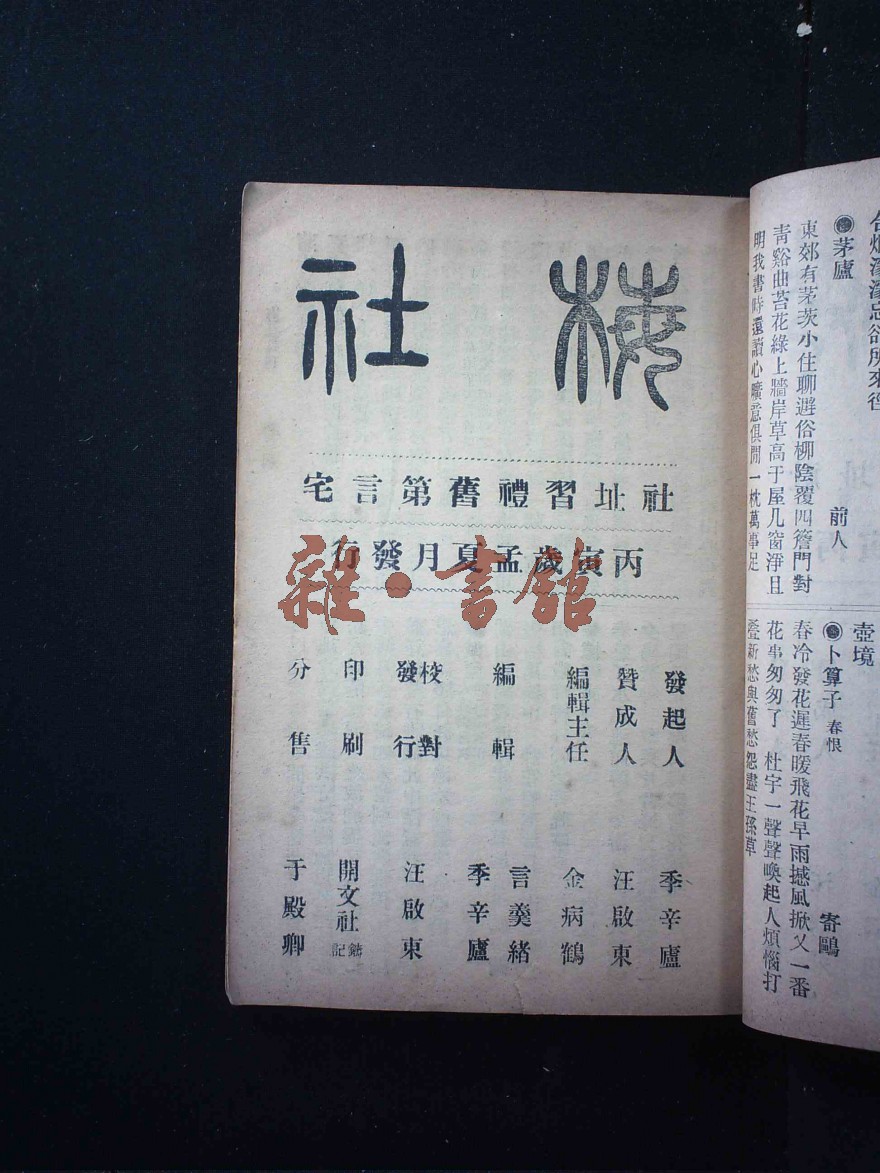 梅社
社址習禮舊第言宅
丙寅歲孟夏月發行
雜·書館
發起人 季辛廬
贊成人 汪啟東
編輯主任 金病鶴
編輯 言羹緒
季辛廬
校對
發行 汪啟東
印刷 開文社
分售 于殿卿
忘欲所來徑
●茅廬 前人
東郊有茅茨小住聊避俗柳陰覆四簷門對
青谿曲苔花綠上牆岸草高于屋几窗淨且
明我書時還讀心曠意俱閒一枕萬事足
壺境
●卜算子 春恨 寄鷗
春冷發花遲春暖飛花早雨撼風掀又一番
花事匆匆了 杜宇一聲聲喚起人煩惱打
疊新愁與舊愁怨盡王孫草